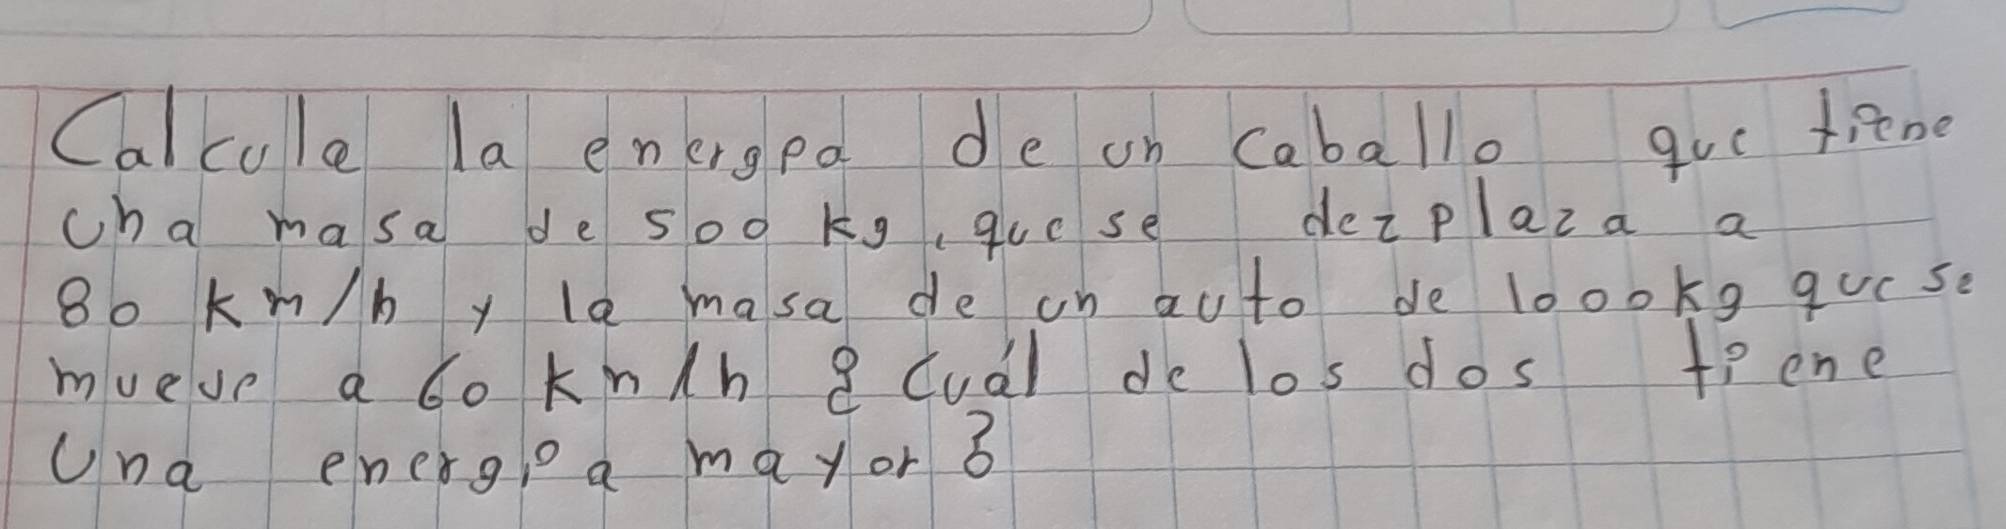 Calcula la energia de un caballo que tiene
una masa de 500 kg, que se dezplaza a
80 km/h y la masa de un auto de 1000kg que se
mueve a 60 km/h ¿Cuál de los dos tiene
Una energia mayor?